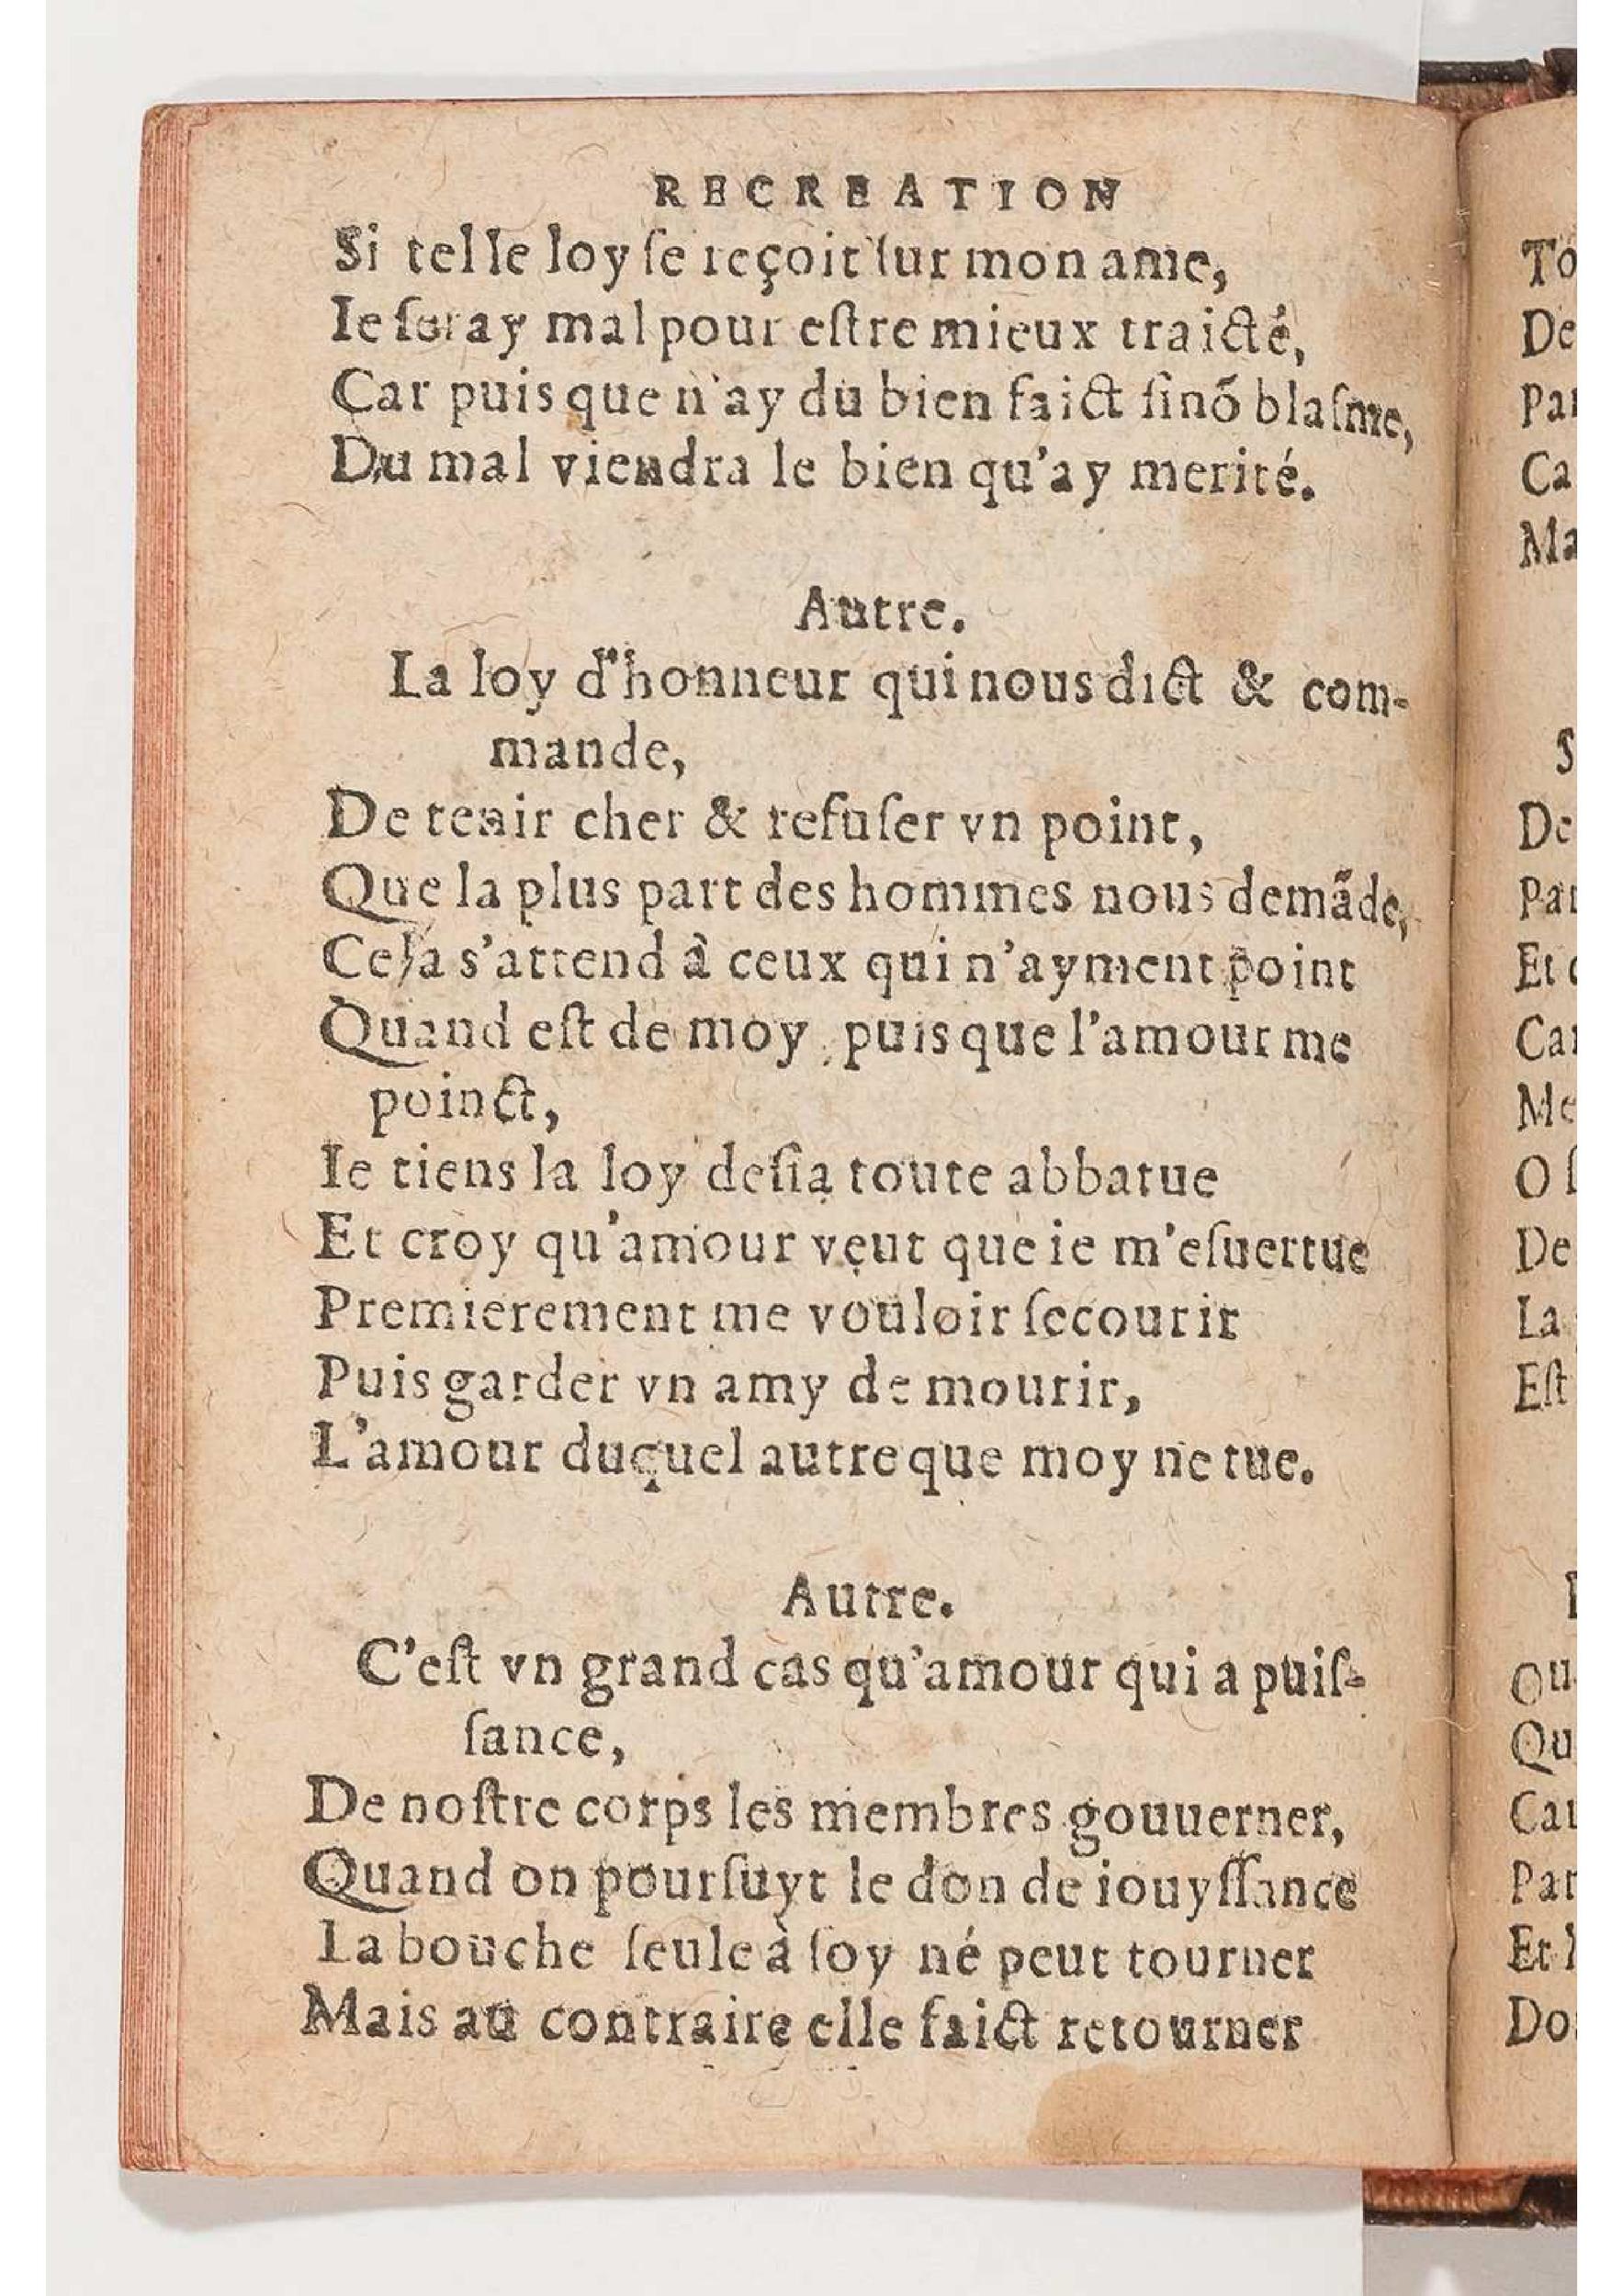 RECREATION
Si telle loy ſe reçoit ſur mon ame,
Ie feray mal pour eſtre mieux traicté,
Car puis que n'ay du bien faict ſinõ blaſme,
Du mal viendra le bien qu'ay merité.
Autre.
La loy d'honneur qui nous dict & com-
mande,
De tenir cher & refuſer vn point,
Que la plus part des hommes nous demãde,
Cela s'attend à ceux qui n'ayment point
Quand eſt de moy, puis que l'amour me
poinct,
Ie tiens la loy deſia toute abbatue
Et croy qu'amour veut que ie m'eſuertue
Premierement me vouloir ſecourir
Puis garder vn amy de mourir,
L'amour duquel autre que moy ne tue.
Autre.
C'eſt vn grand cas qu'amour qui a puiſ-
ſance,
De noſtre corps les membres gouuerner,
Quand on pourſuyt le don de iouyſſance
La bouche ſeule à ſoy né peut tourner
Mais au contraire elle faict retourner
To
De
Par
Ca
Ma
S
De
Par
Et
Car
Me
O
De
La
Eſt
Ou
Qu
Cau
Par
Et
Do